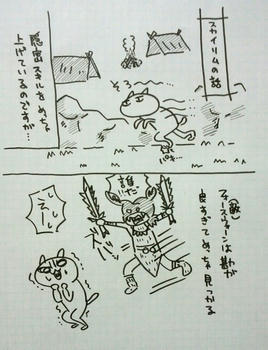 スカイリムの話
隠密スキルをめちゃ
上げているのですが…
そろ〜
パキ…
(敵)
フォースウォーンは勘が
良すぎてめっちゃ見つかる
誰だ